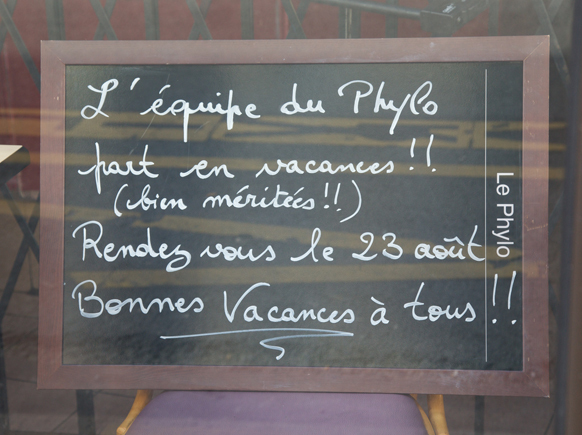 L'équipe du Phylo
part en vacances !!
(bien méritées !!)
Rendez vous le 23 août
Bonnes Vacances à tous !!
Le Phylo